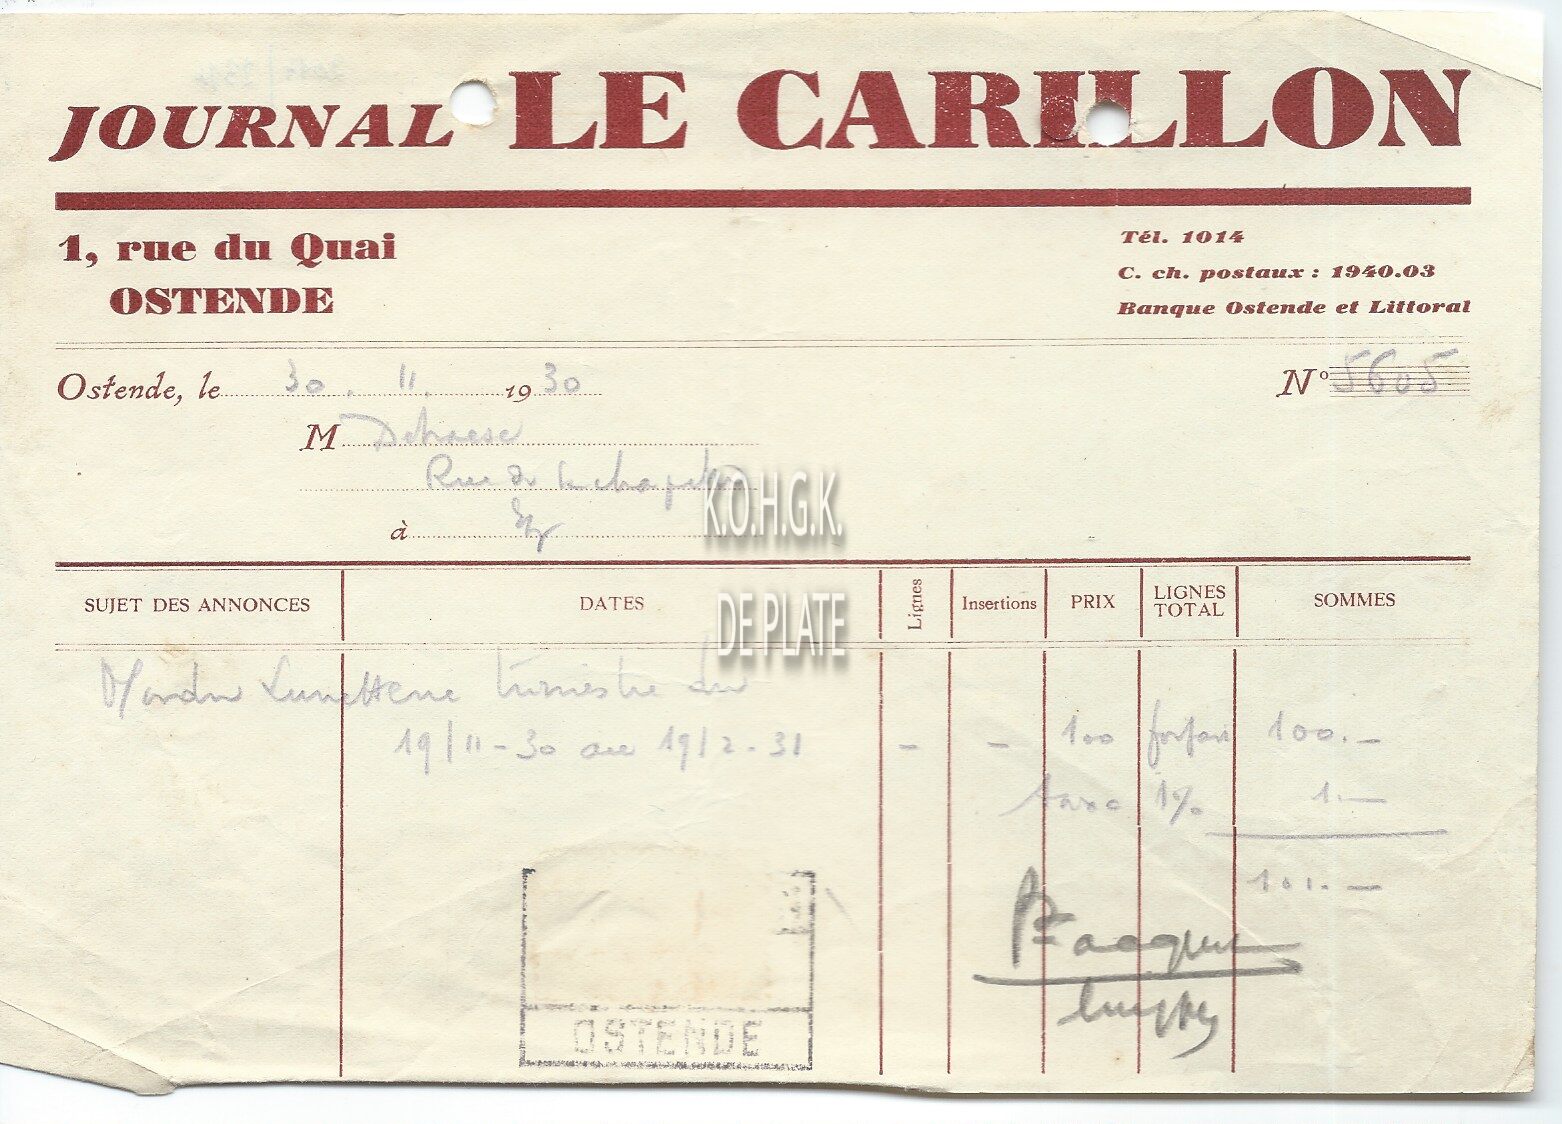 JOURNAL LE CARILLON
1, rue du Quai
OSTENDE
Tél. 1014
C. ch. postaux : 1940.03
Banque Ostende et Littoral
Ostende, le 30. 11. 1930
Nº 5605
M
Rue de la chapelle
à
K.O.H.G.K.
DE PLATE
SUJET DES ANNONCES DATES Lignes Insertions PRIX LIGNES TOTAL SOMMES
Lunetterie trimestre du
19/11-30 au 19/2-31 - - 100 forfait 100.-
taxe 1% 1.-
101.-
OSTENDE